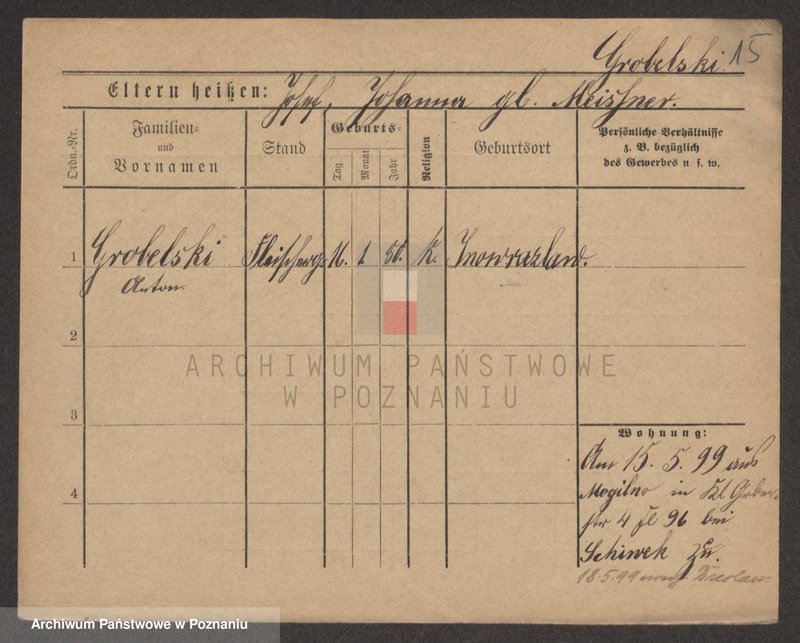 Grobelski. 15
Eltern heißen: Josef, Johanna gb. Meissner.
Ordn.-Nr.
Familien- und Vornamen
Stand
Geburts-
Tag Monat Jahr
Religion
Geburtsort
Persönliche Verhältnisse
z. B. bezüglich
des Gewerbes u. s. w.
1 Grobelski Fleischerg. 1 80. k. Inowrazlaw.
Anton.
2
ARCHIWUM PAŃSTWOWE
W POZNANIU
3
Wohnung:
Am 15. 5. 99 aus
4 Mogilno in Kl Gerber
str 4 96 bei
Schiwek zu.
18.5.99 nach Breslau
Archiwum Państwowe w Poznaniu